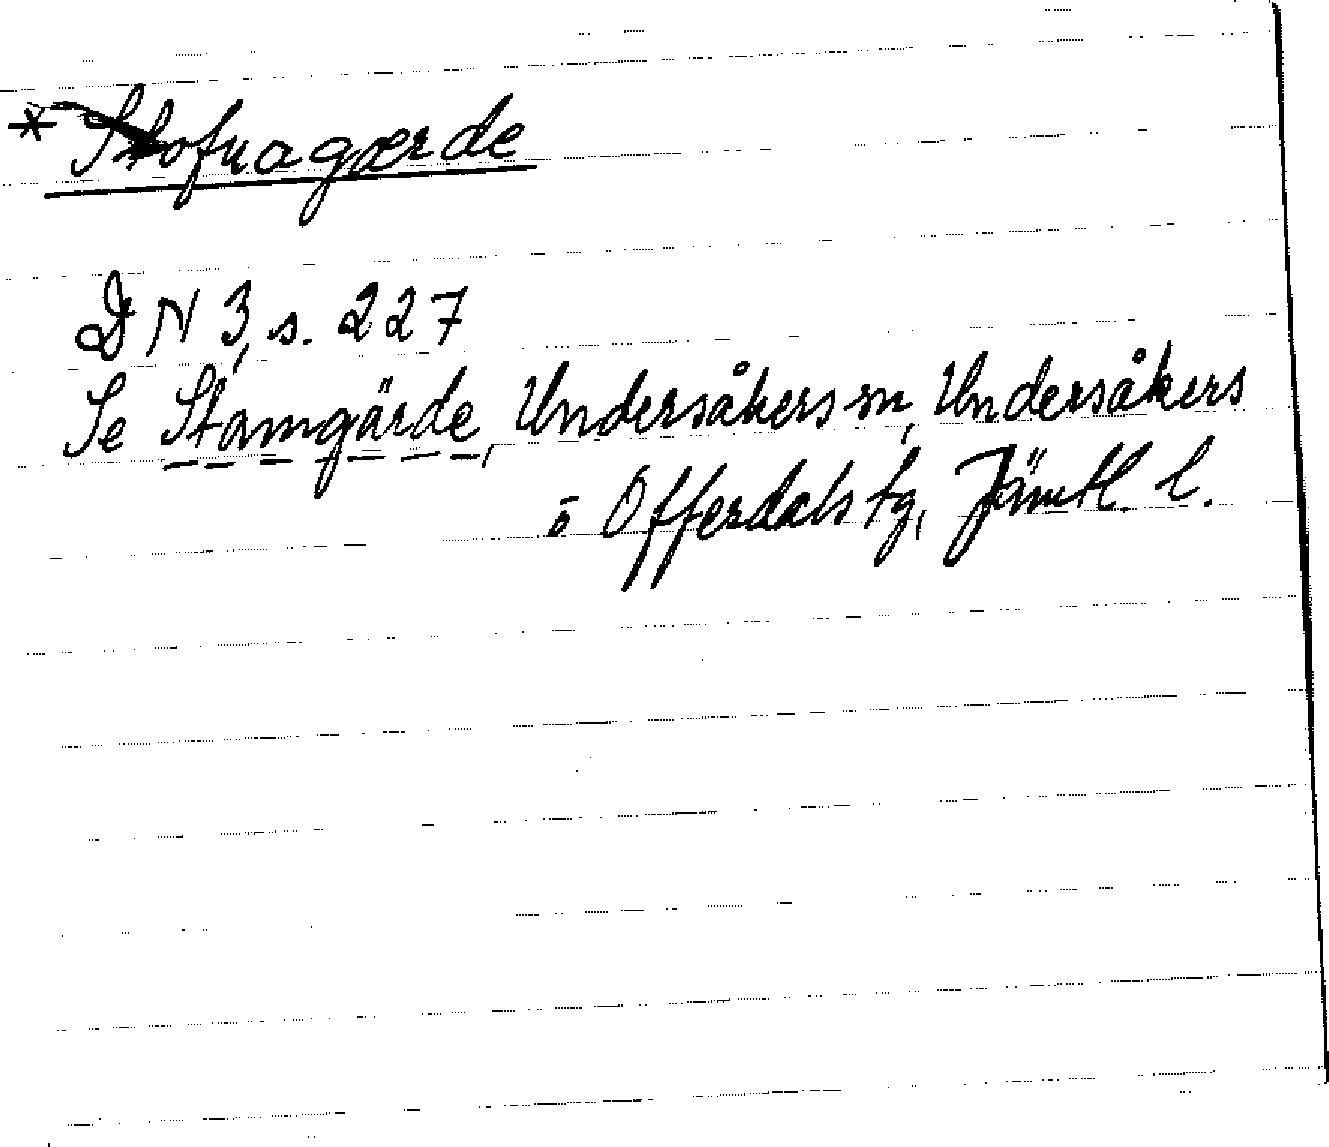 * Stofnagærde
DN 3, s. 227
Se Stamgärde, Undersåkers sn, Undersåkers
o Offerdals tg, Jämtl. l.